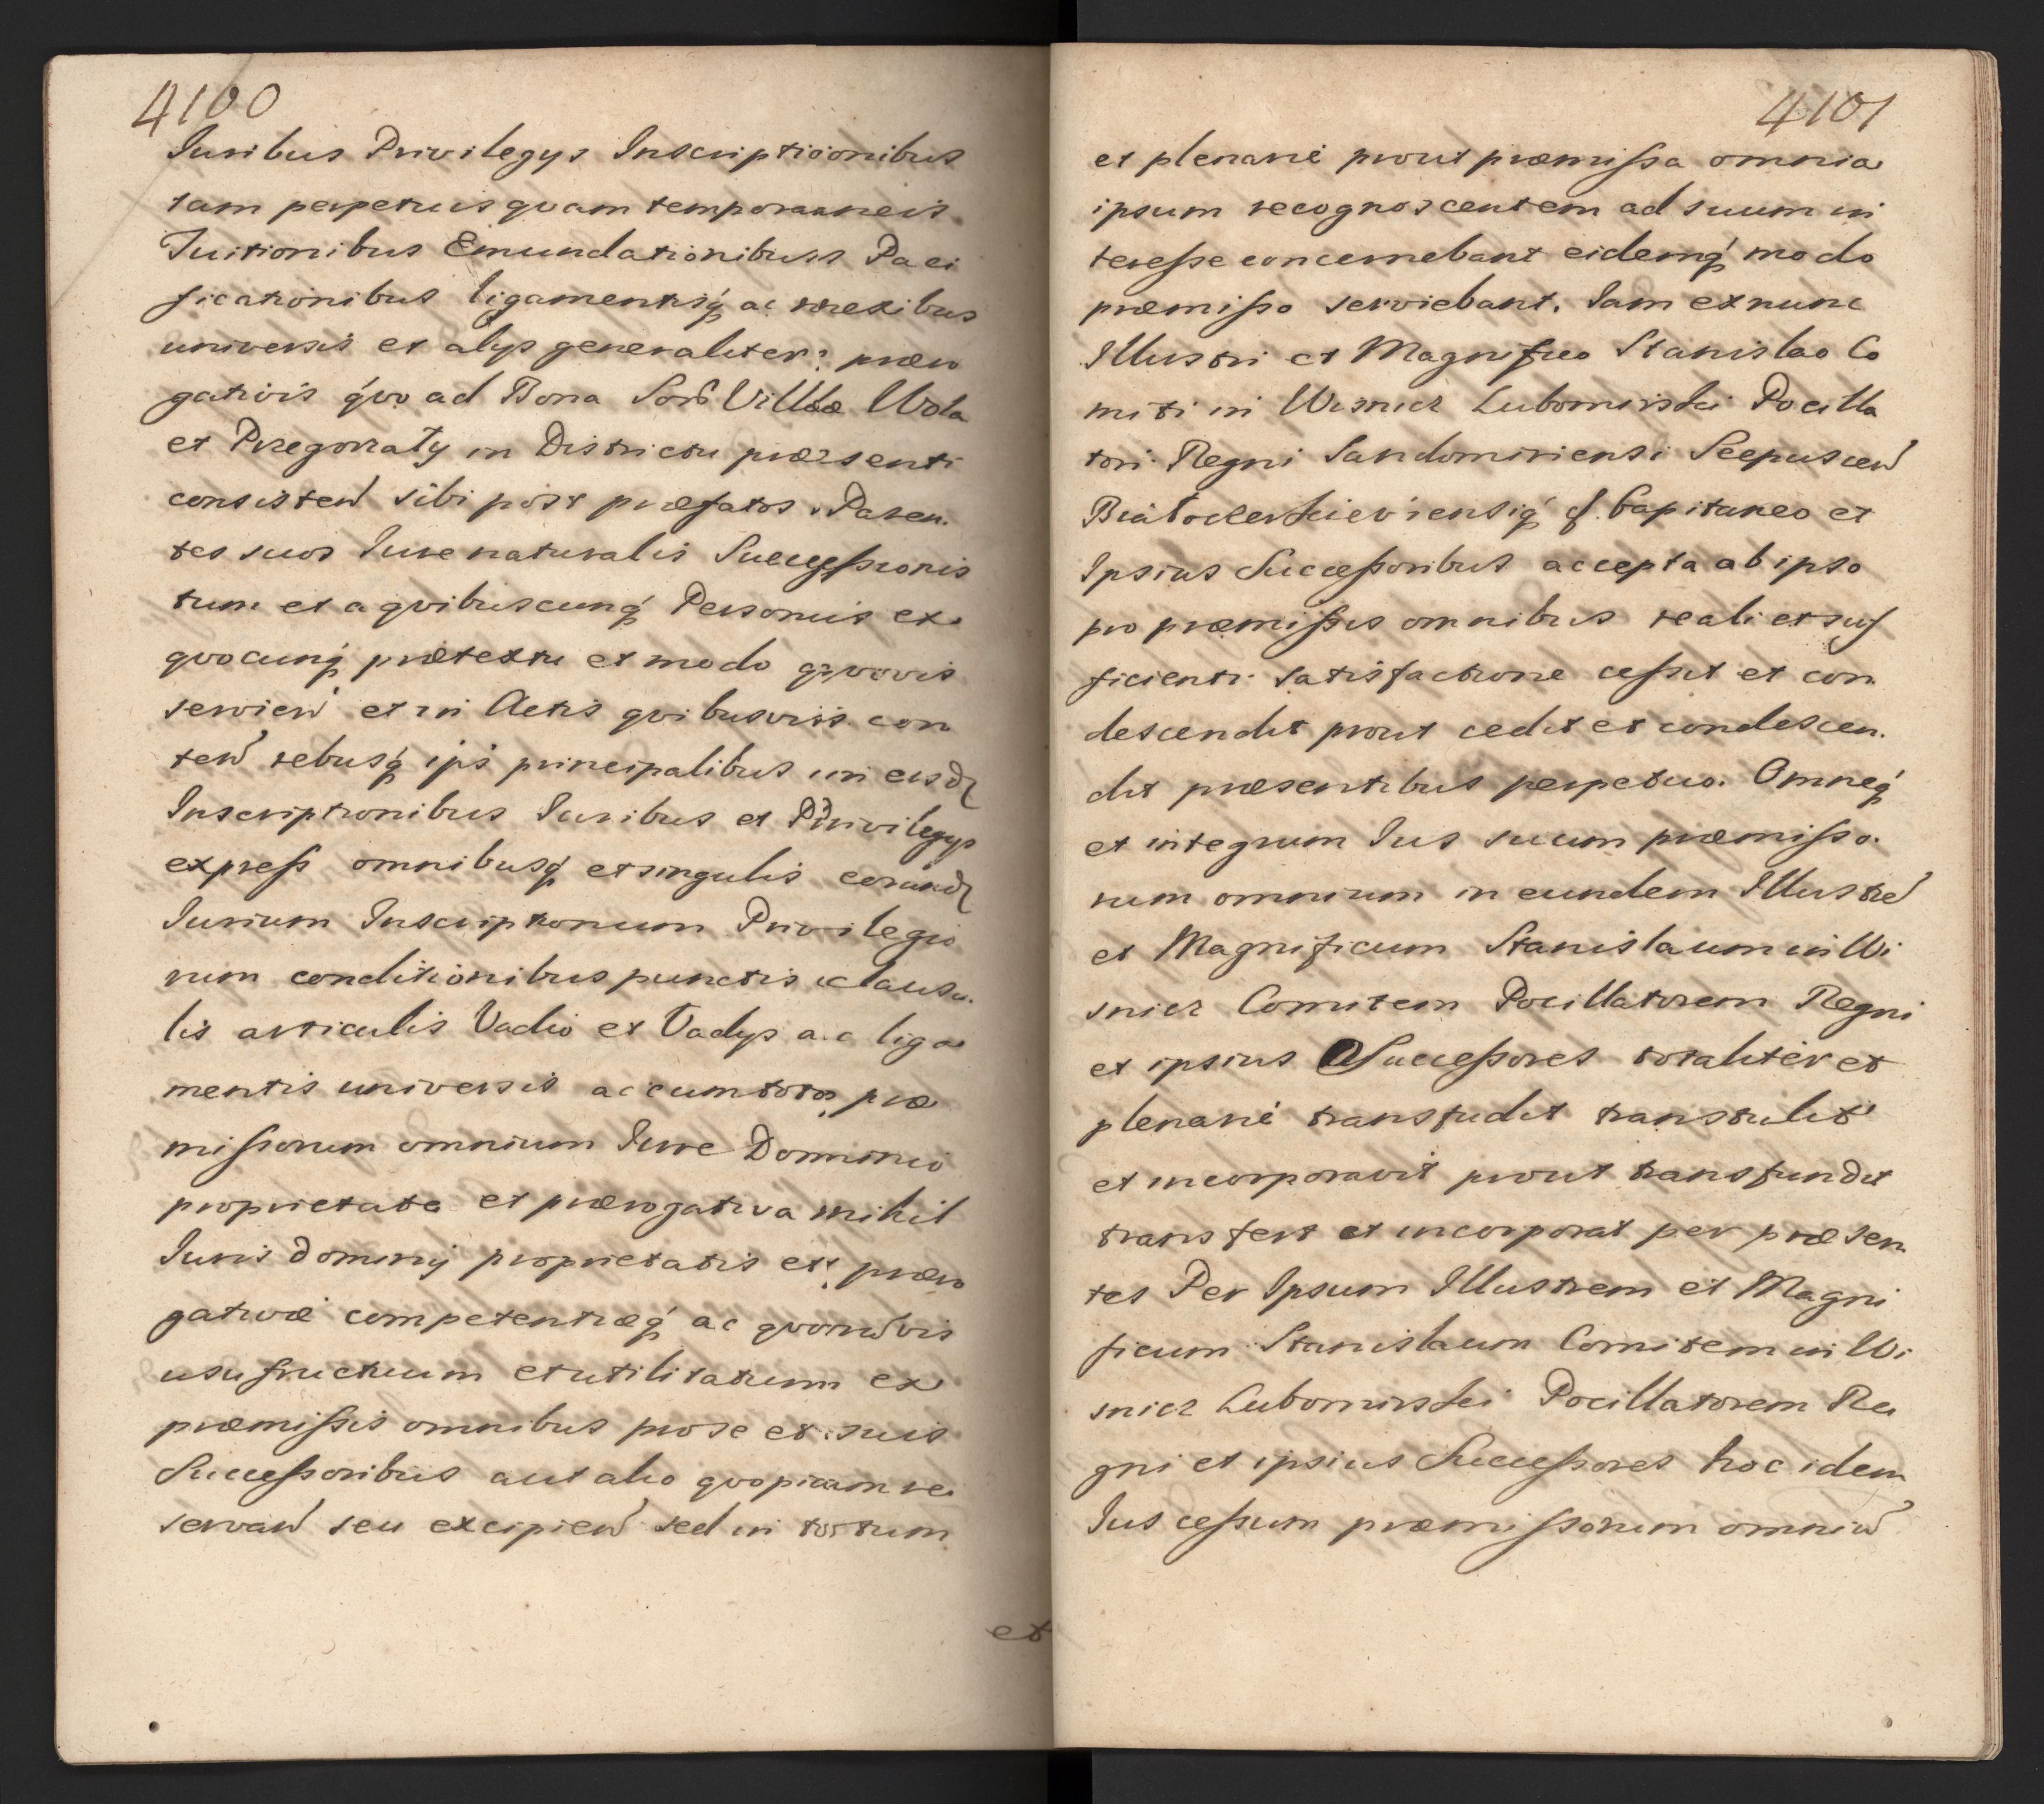 4100
Iuribus Privilegys Inscriptioonibus
tam perpetuis qvam temporaaneis
Tuitionibus Emundationibuss Paci
ficationibus ligamentisq́ ac nexibus
universis et alys generaliter: præro
gativis qvo ad Bona Sorŏ Villæ Wola
et Przegonaty in Districtu præsenti
consisteñ sibi post præfatos Paren.
tes suos Iure naturalis Successionis
tum et a qvibuscunq́ Personis ex
qvocunq́ prætextu et modo qvovis
servieñ et in Actis qvibusvis con
teñ rebusq́ ips̃ principalibus in eisdꝫ
Inscriptionibus Iuribus et Privilegys
express omnibusq́ et singulis eorundꝫ
Iurium Inscriptionum Privilegio
rum conditionibus punctis clausu.
lis articulis Vadio et Vadys ac liga
mentis universis ac cum toto præ
missorum omnium Iure Dominio
proprietate et prærogativa nihil
Iuris dominij proprietatis et præro
gativæ competentiæq́ ac qvorum̃vis
usufructuum et utilitatum ex
præmissis omnibus pro se et suis
Successoribus aut alio qvopiam re
servañ seu excipieñ sed in totum
et
4101
et plenarie prout præmissa omnia
ipsum recognoscentem ad suum in
teresse concernebant eidemq́ modo
præmisso serviebant. Iam ex nunc
Illustri et Magnifico Stanislao Co
miti in Wisnicz Lubomirski Pocilla
tori Regni Sandomiriensi Scepusceñ
Białocerkieviensiq́ Capitaneo et
Ipsius Successoribus accepta ab ipso
pro præmissis omnibus reali et suf
ficienti satisfactione cessit et con
descendit prout cedit et condescen.
dit præsentibus perpetuo. Omneq́
et integrum Ius suum præmisso.
rum omnium in eundem Illustrẽ
et Magnificum Stanislaum in Wi
snicz Comitem Pocillatorem Regni
et ipsius Successores totaliter et
plenarie transfudit transtulit
et incorporavit prout transfundit
transfert et incorporat per præsen
tes Per Ipsum Illustrem et Magni
ficum Stanislaum Comitem in Wi
snicz Lubomirski Pocillatorem Re
gni et ipsius Successores hoc idem
Ius cessum præmissorum omniũ